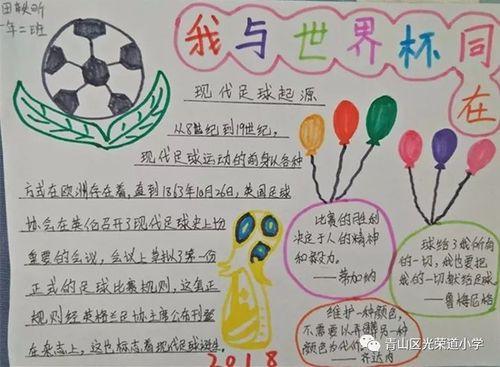 一年二班
我与世界杯同在
现代足球起源
从8世纪到19世纪,
现代足球运动的前身以各种
方式在欧洲存在着,直到1863年10月26日,英国足球
协会在英伦召开了现代足球史上切
重要的会议,会议上草拟了第一份
正式的足球比赛规则,这套正
规则经英格兰足协主席公布刊登
在杂志上,这也标志着现代足球诞生。
2018
比赛的胜利
决定于人的精神
和毅力。
——蒂加纳
球给了我所有
的一切,我也要把
我的一切献给足球。
——鲁梅尼格
维护一种颜色,
不需要以弄
颜色为代价
——齐达内
青山区光荣道小学